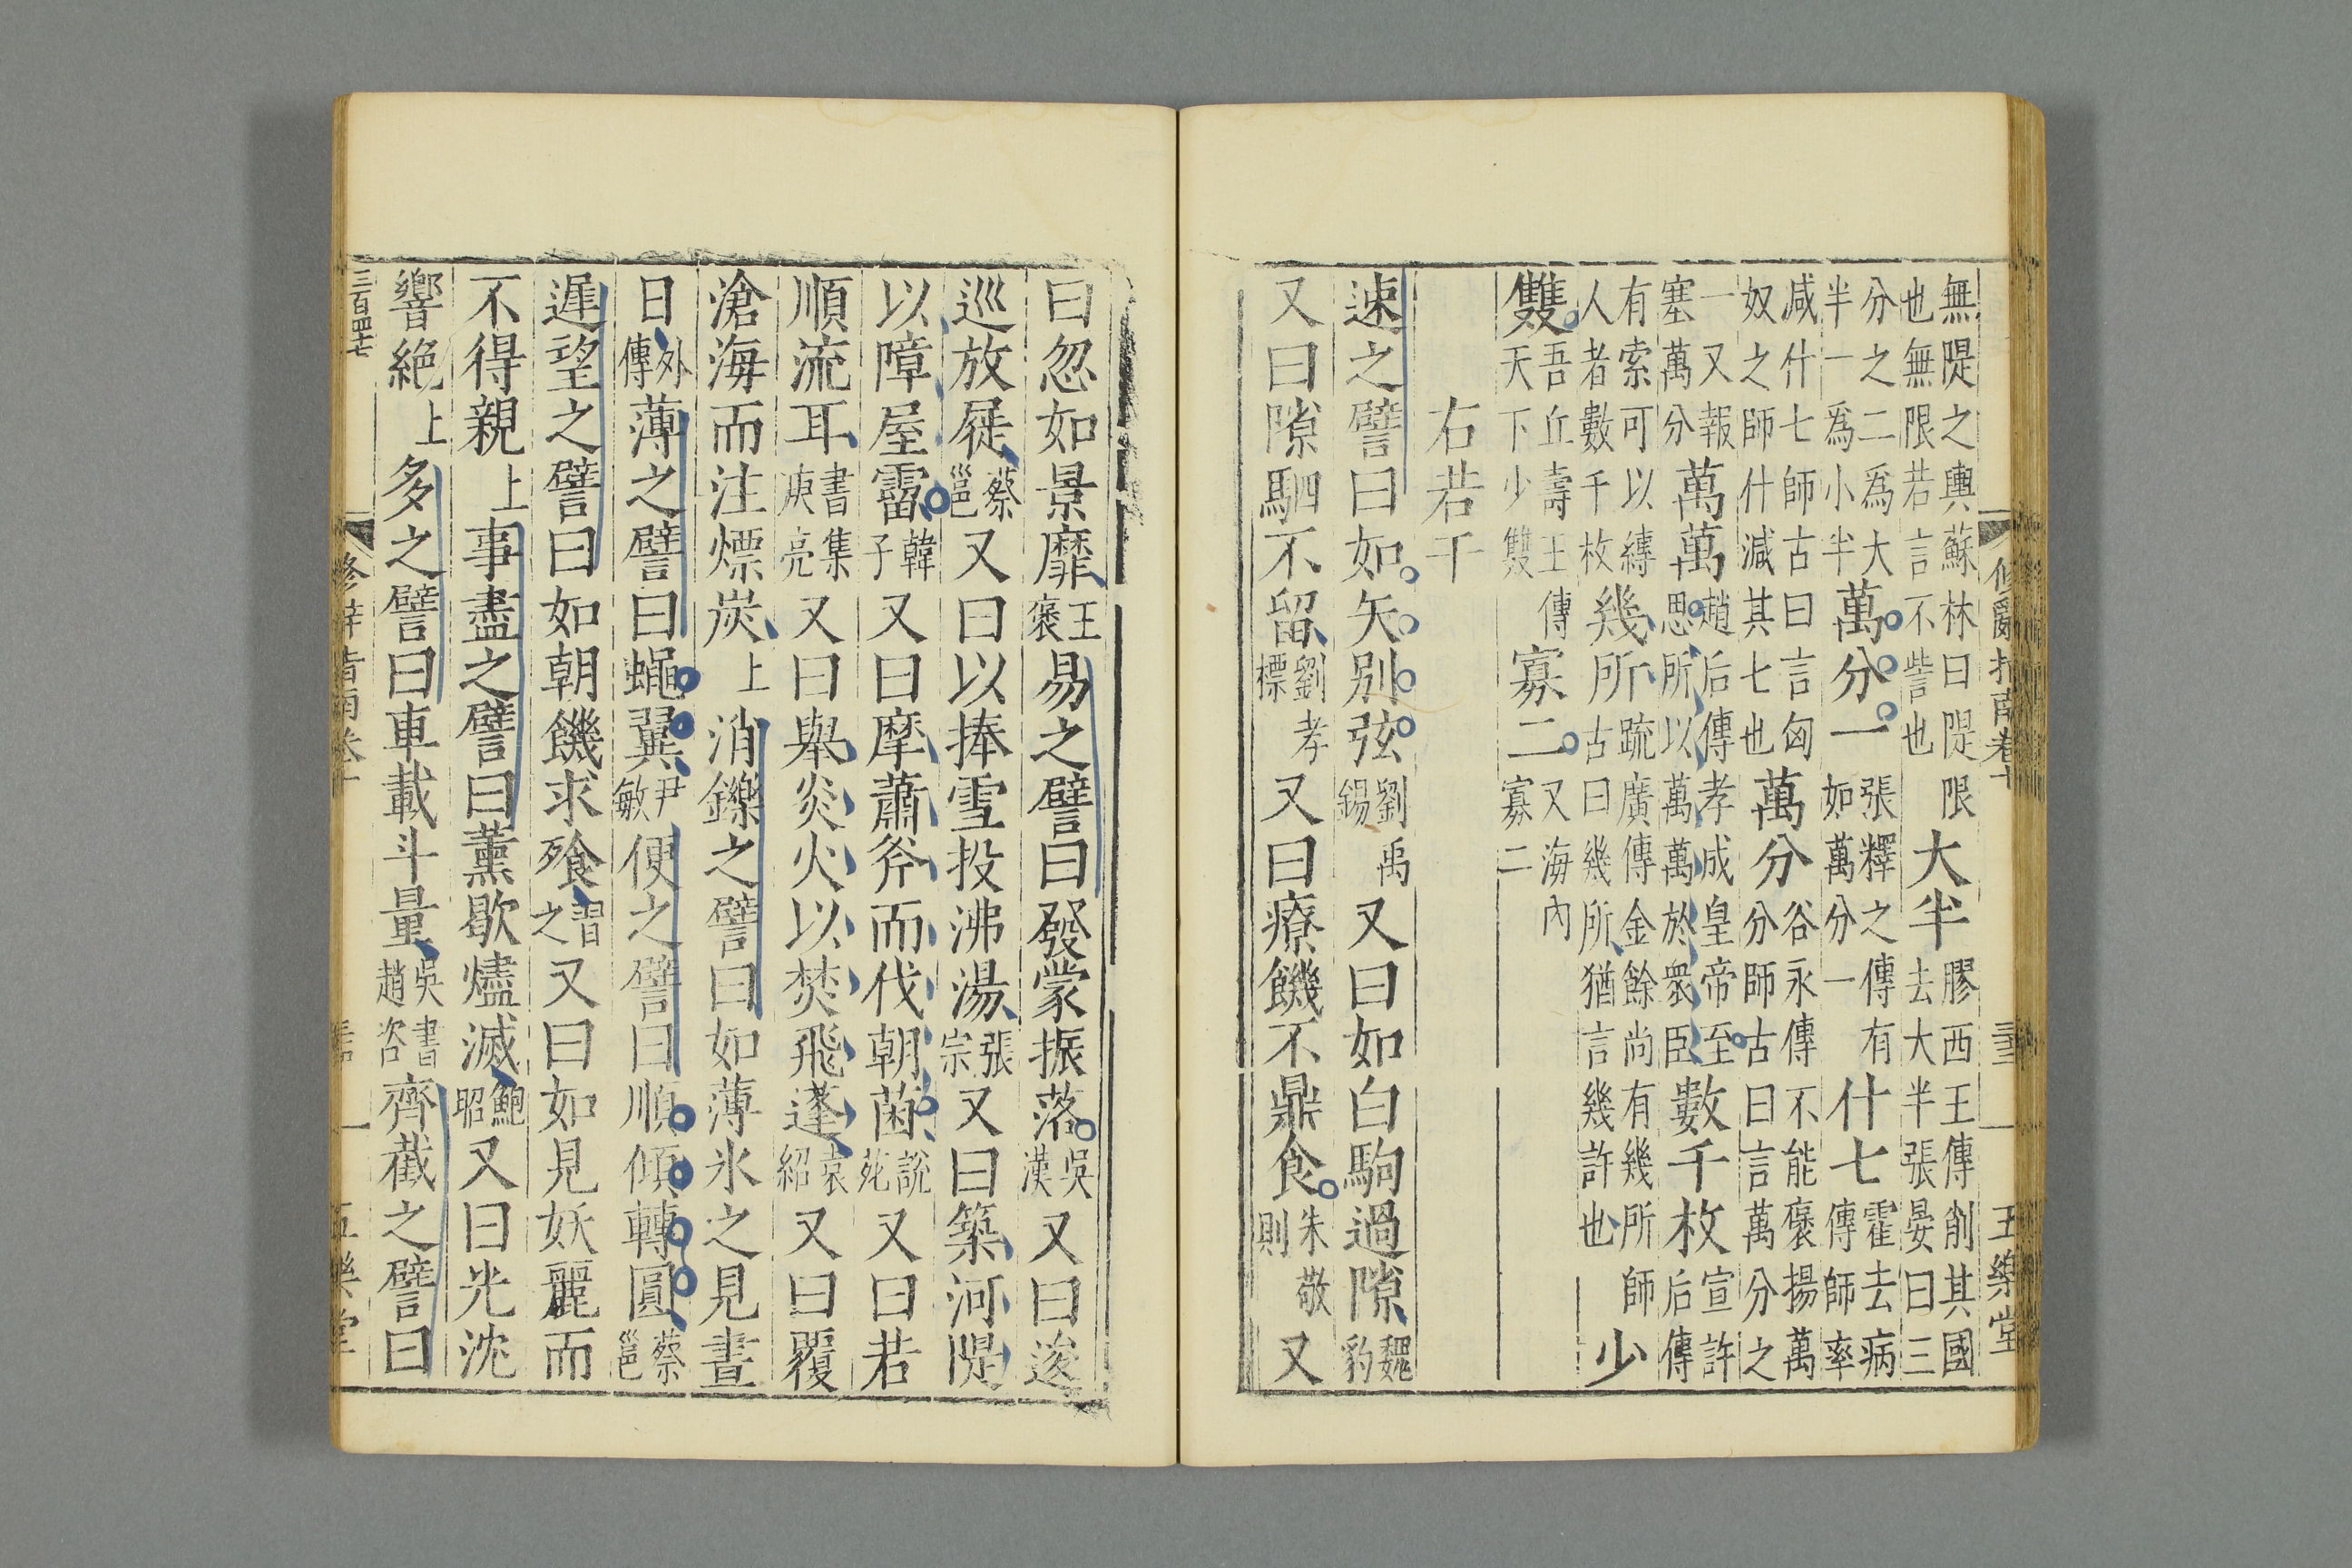 修辭指南卷十 五樂堂
無隄之輿蘇林曰隄限也無限若言不訾也大半膠西王傳削其國去大半張晏曰三
分之二爲大半一爲小半萬分一張釋之傳有如萬分一什七霍去病傳師率
减什七師古曰言匈奴之師什減其七也萬分谷永傳不能褒揚萬分師古曰言萬分之
一又報塞萬分萬萬趙后傳孝成皇帝至思所以萬萬於衆臣數千枚宣許后傳
有索可以縳人者數千枚幾所疏廣傳金餘尚有幾所師古曰幾所猶言幾許也少
雙吾丘壽王傳天下少雙寡二又海內寡二
右若干
速之譬曰如矢別弦劉禹錫又曰如白駒過隙魏豹
又曰隙駟不留劉孝標又曰療饑不鼎食朱敬則又
曰忽如景靡王褒易之譬曰發蒙振落吳漢又曰逡
巡放屣蔡邕又曰以捧雪投沸湯張宗又曰築河隄
以障屋霤韓子又曰摩蕭斧而伐朝菌說苑又曰若
順流耳書集庾亮又曰舉炎火以焚飛蓬袁紹又曰覆
滄海而注熛炭上消鑠之譬曰如薄氷之見晝
日外傳薄之譬曰蠅翼尹敏便之譬曰順傾轉圓蔡邕
遲望之譬曰如朝饑求飡習之又曰如見妖麗而
不得親上事盡之譬曰薰歇燼滅鮑昭又曰光沈
響絶上多之譬曰車載斗量吳書趙咨齊截之譬曰
三百四十七 修辭指南卷十 五樂堂